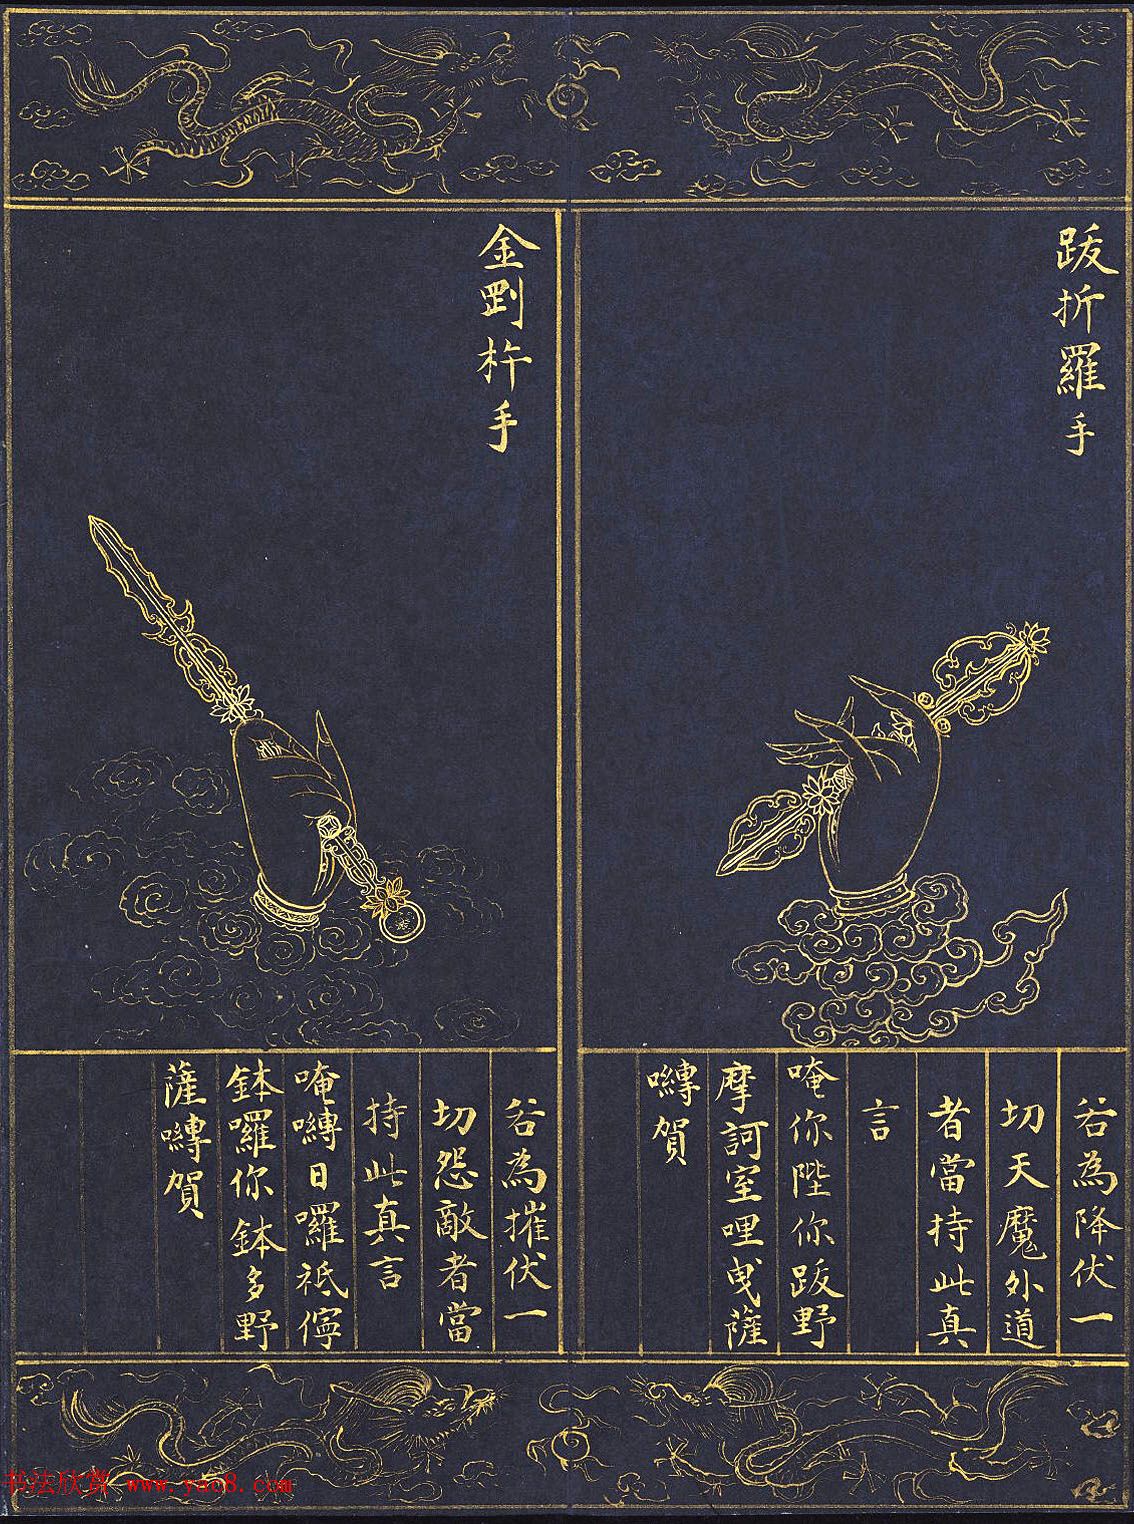 跋折羅手
若為降伏一
切天魔外道
者當持此真
言
唵你陛你跋野
摩訶室哩曳薩
嚩賀
金剛杵手
若為摧伏一
切怨敵者當
持此真言
唵嚩日囉祗儜
鉢囉你鉢多野
薩嚩賀
书法欣赏 www.yac8.com